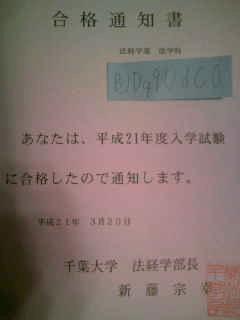 合格通知書
法経学部 法学科
あなたは、平成21年度入学試験
に合格したので通知します。
平成21年 3月20日
千葉大学 法経学部長
新藤宗幸